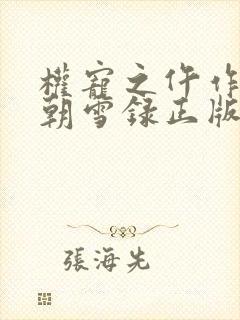 權寵之仵作
朝雪録正版
張海先